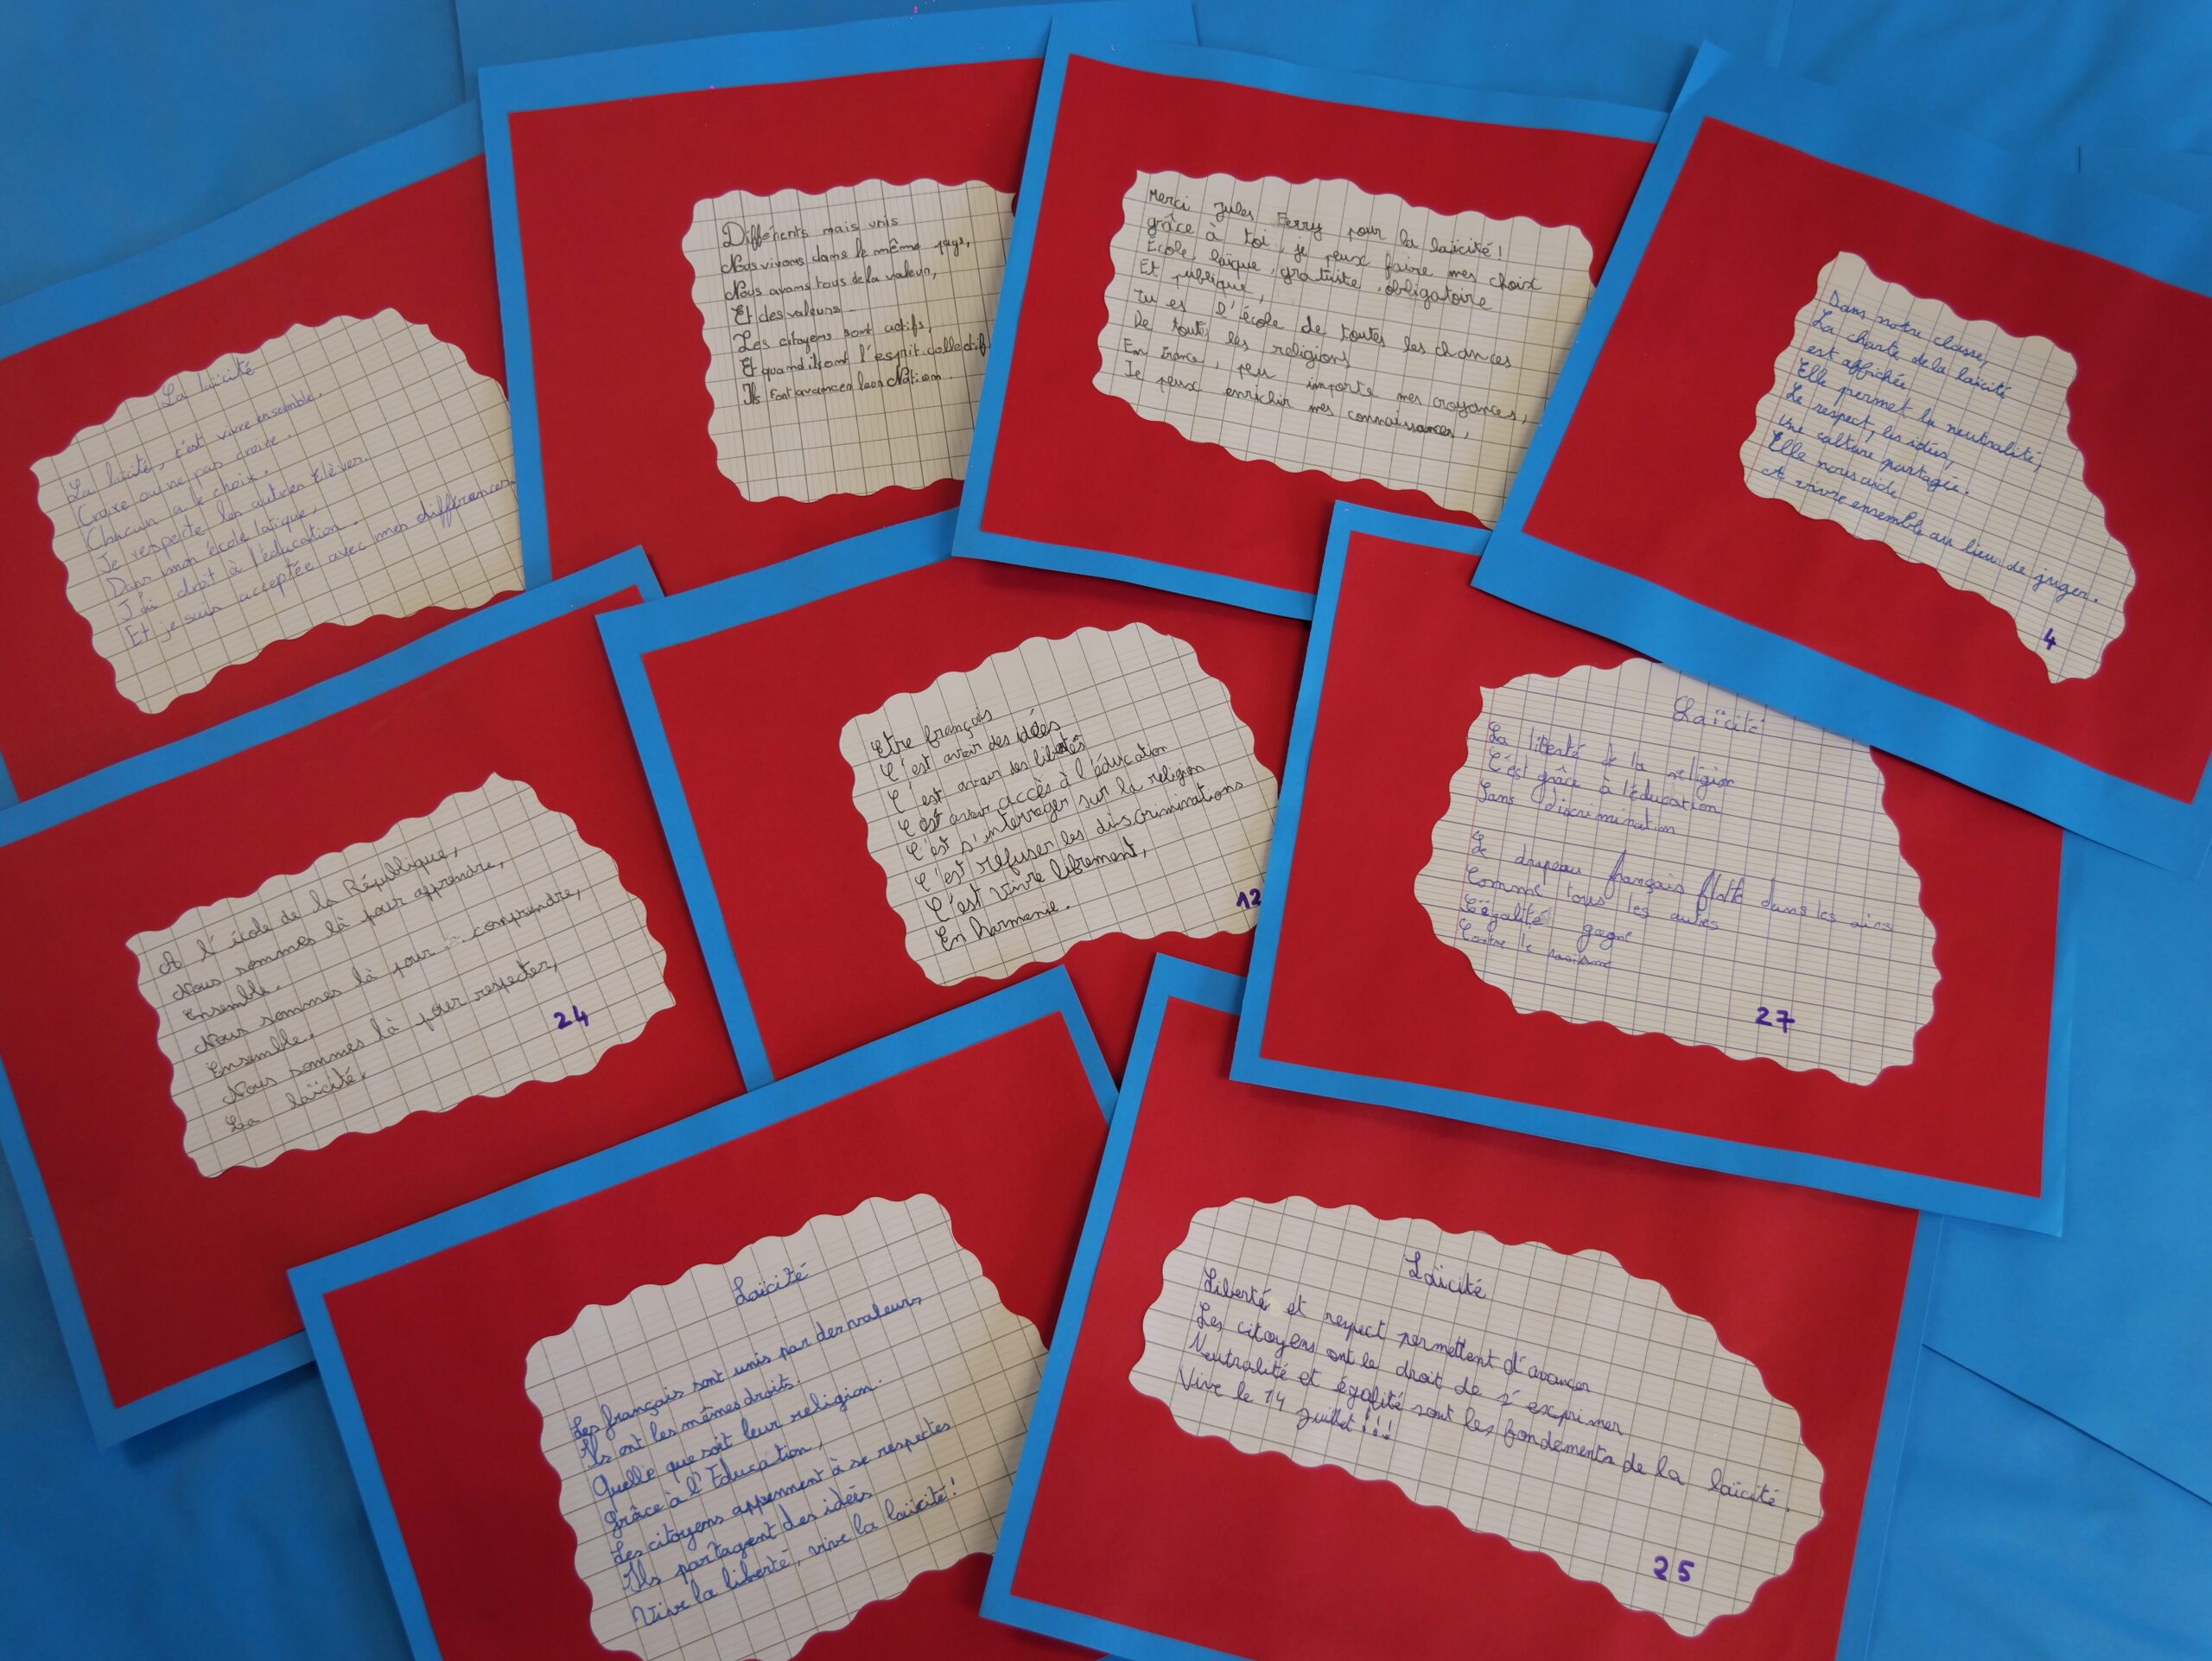 La laïcité
La laïcité, c'est vivre ensemble.
Croire ou ne pas croire.
Chacun a le choix.
Je respecte les autres élèves.
Dans mon école laïque,
J'ai droit à l'éducation.
Et je suis acceptée avec mes différences.
Différents mais unis
Nous vivons dans le même pays,
Nous avons tous de la valeur,
Et des valeurs.
Les citoyens sont actifs,
Et quand ils ont l'esprit collectif
Ils font avancer leur Nation.
Merci Jules Ferry pour la laïcité !
grâce à toi, je peux faire mes choix
École, laïque, gratuite, obligatoire
Et publique,
Tu es l'école de toutes les chances
De toutes les religions
En France, peu importe mes croyances,
Je peux enrichir mes connaissances,
Dans notre classe,
La charte de la laïcité
est affichée
Elle permet la neutralité,
Le respect, les idées,
Une culture partagée.
Elle nous aide
A vivre ensemble au lieu de juger.
4
A l'école de la République,
Nous sommes là pour apprendre,
Ensemble.
Nous sommes là pour comprendre,
Ensemble.
Nous sommes là pour respecter,
La laïcité.
24
Etre français
C'est avoir des idées
C'est avoir des libertés
C'est avoir accès à l'éducation
C'est s'interroger sur la religion
C'est refuser les discriminations
C'est vivre librement,
En harmonie.
12
Laïcité
La liberté de la religion
C'est grâce à l'éducation
Sans discrimination
Le drapeau français flotte dans les airs
Comme tous les autres
L'égalité gagne
Contre le racisme
27
Laïcité
Les français sont unis par des valeurs,
Ils ont les mêmes droits.
Quelle que soit leur religion.
Grâce à l'Education,
Les citoyens apprennent à se respectes
Ils partagent des idées
Vive la liberté, vive la laïcité !
Laïcité
Liberté et respect permettent d'avancer
Les citoyens ont le droit de s'exprimer
Neutralité et égalité sont les fondements de la laïcité.
Vive le 14 juillet !!!
25